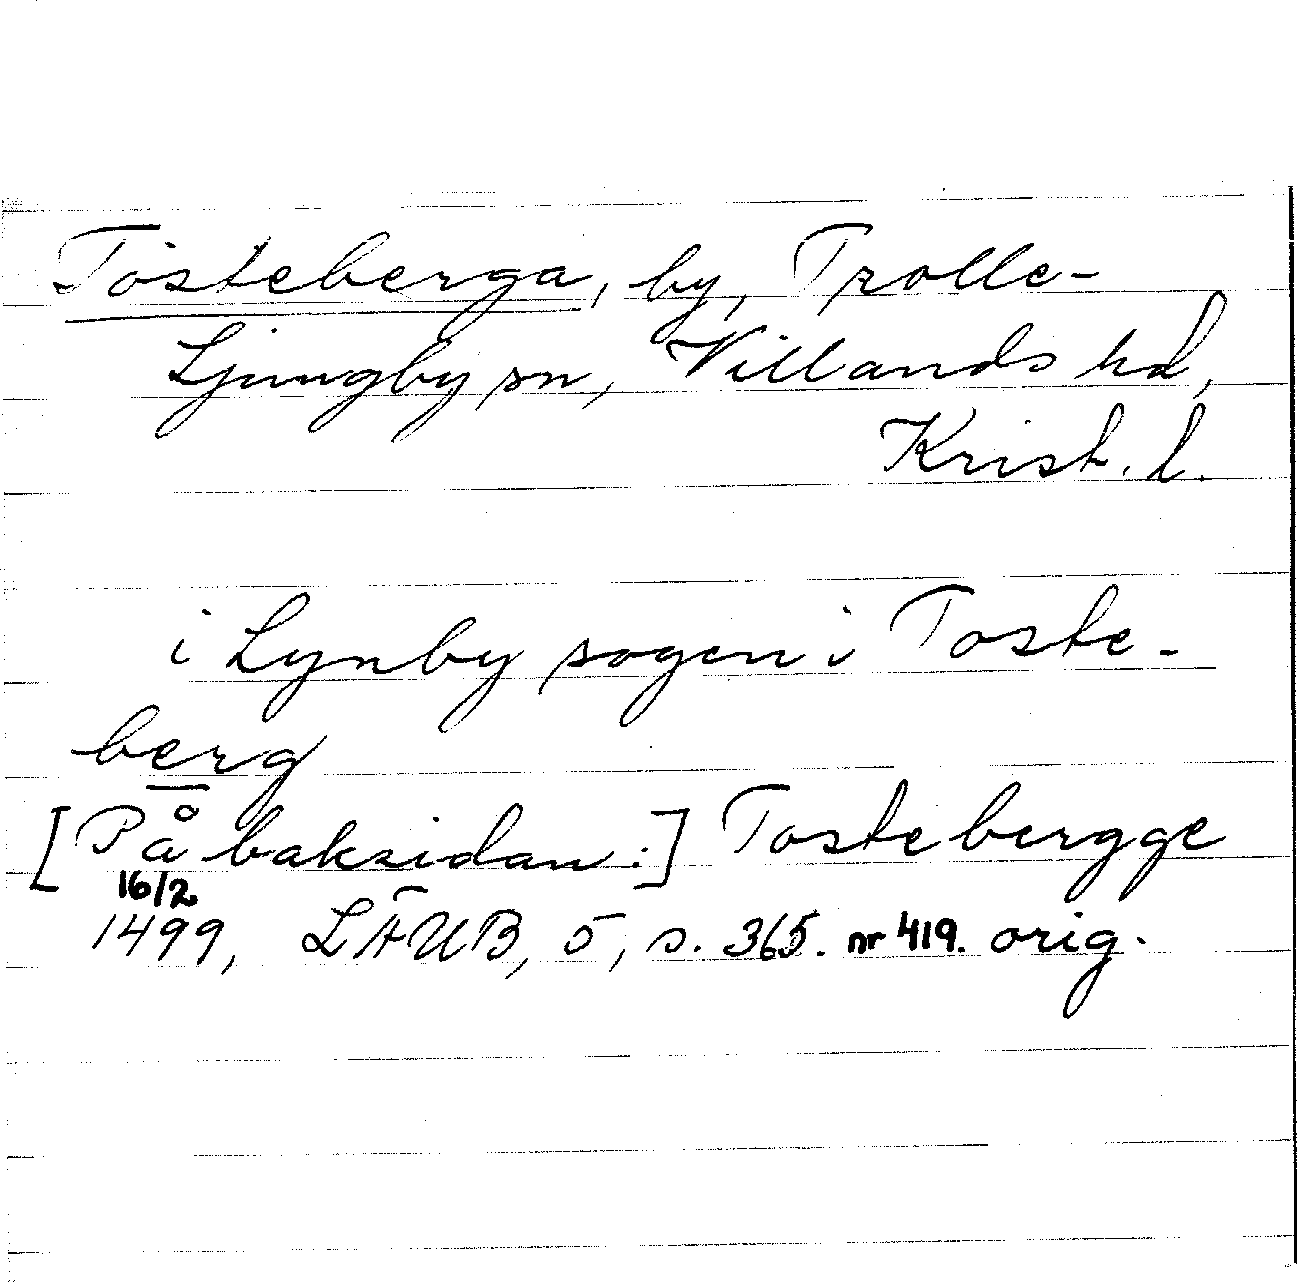 Tosteberga, by, Trolle-
Ljungby sn, Villands hd,
Krist. l.
i Lynby sogen i Toste-
berg
[På baksidan:] Tostebergge
16/2
1499, LÄUB, 5, s. 365. nr 419. orig.